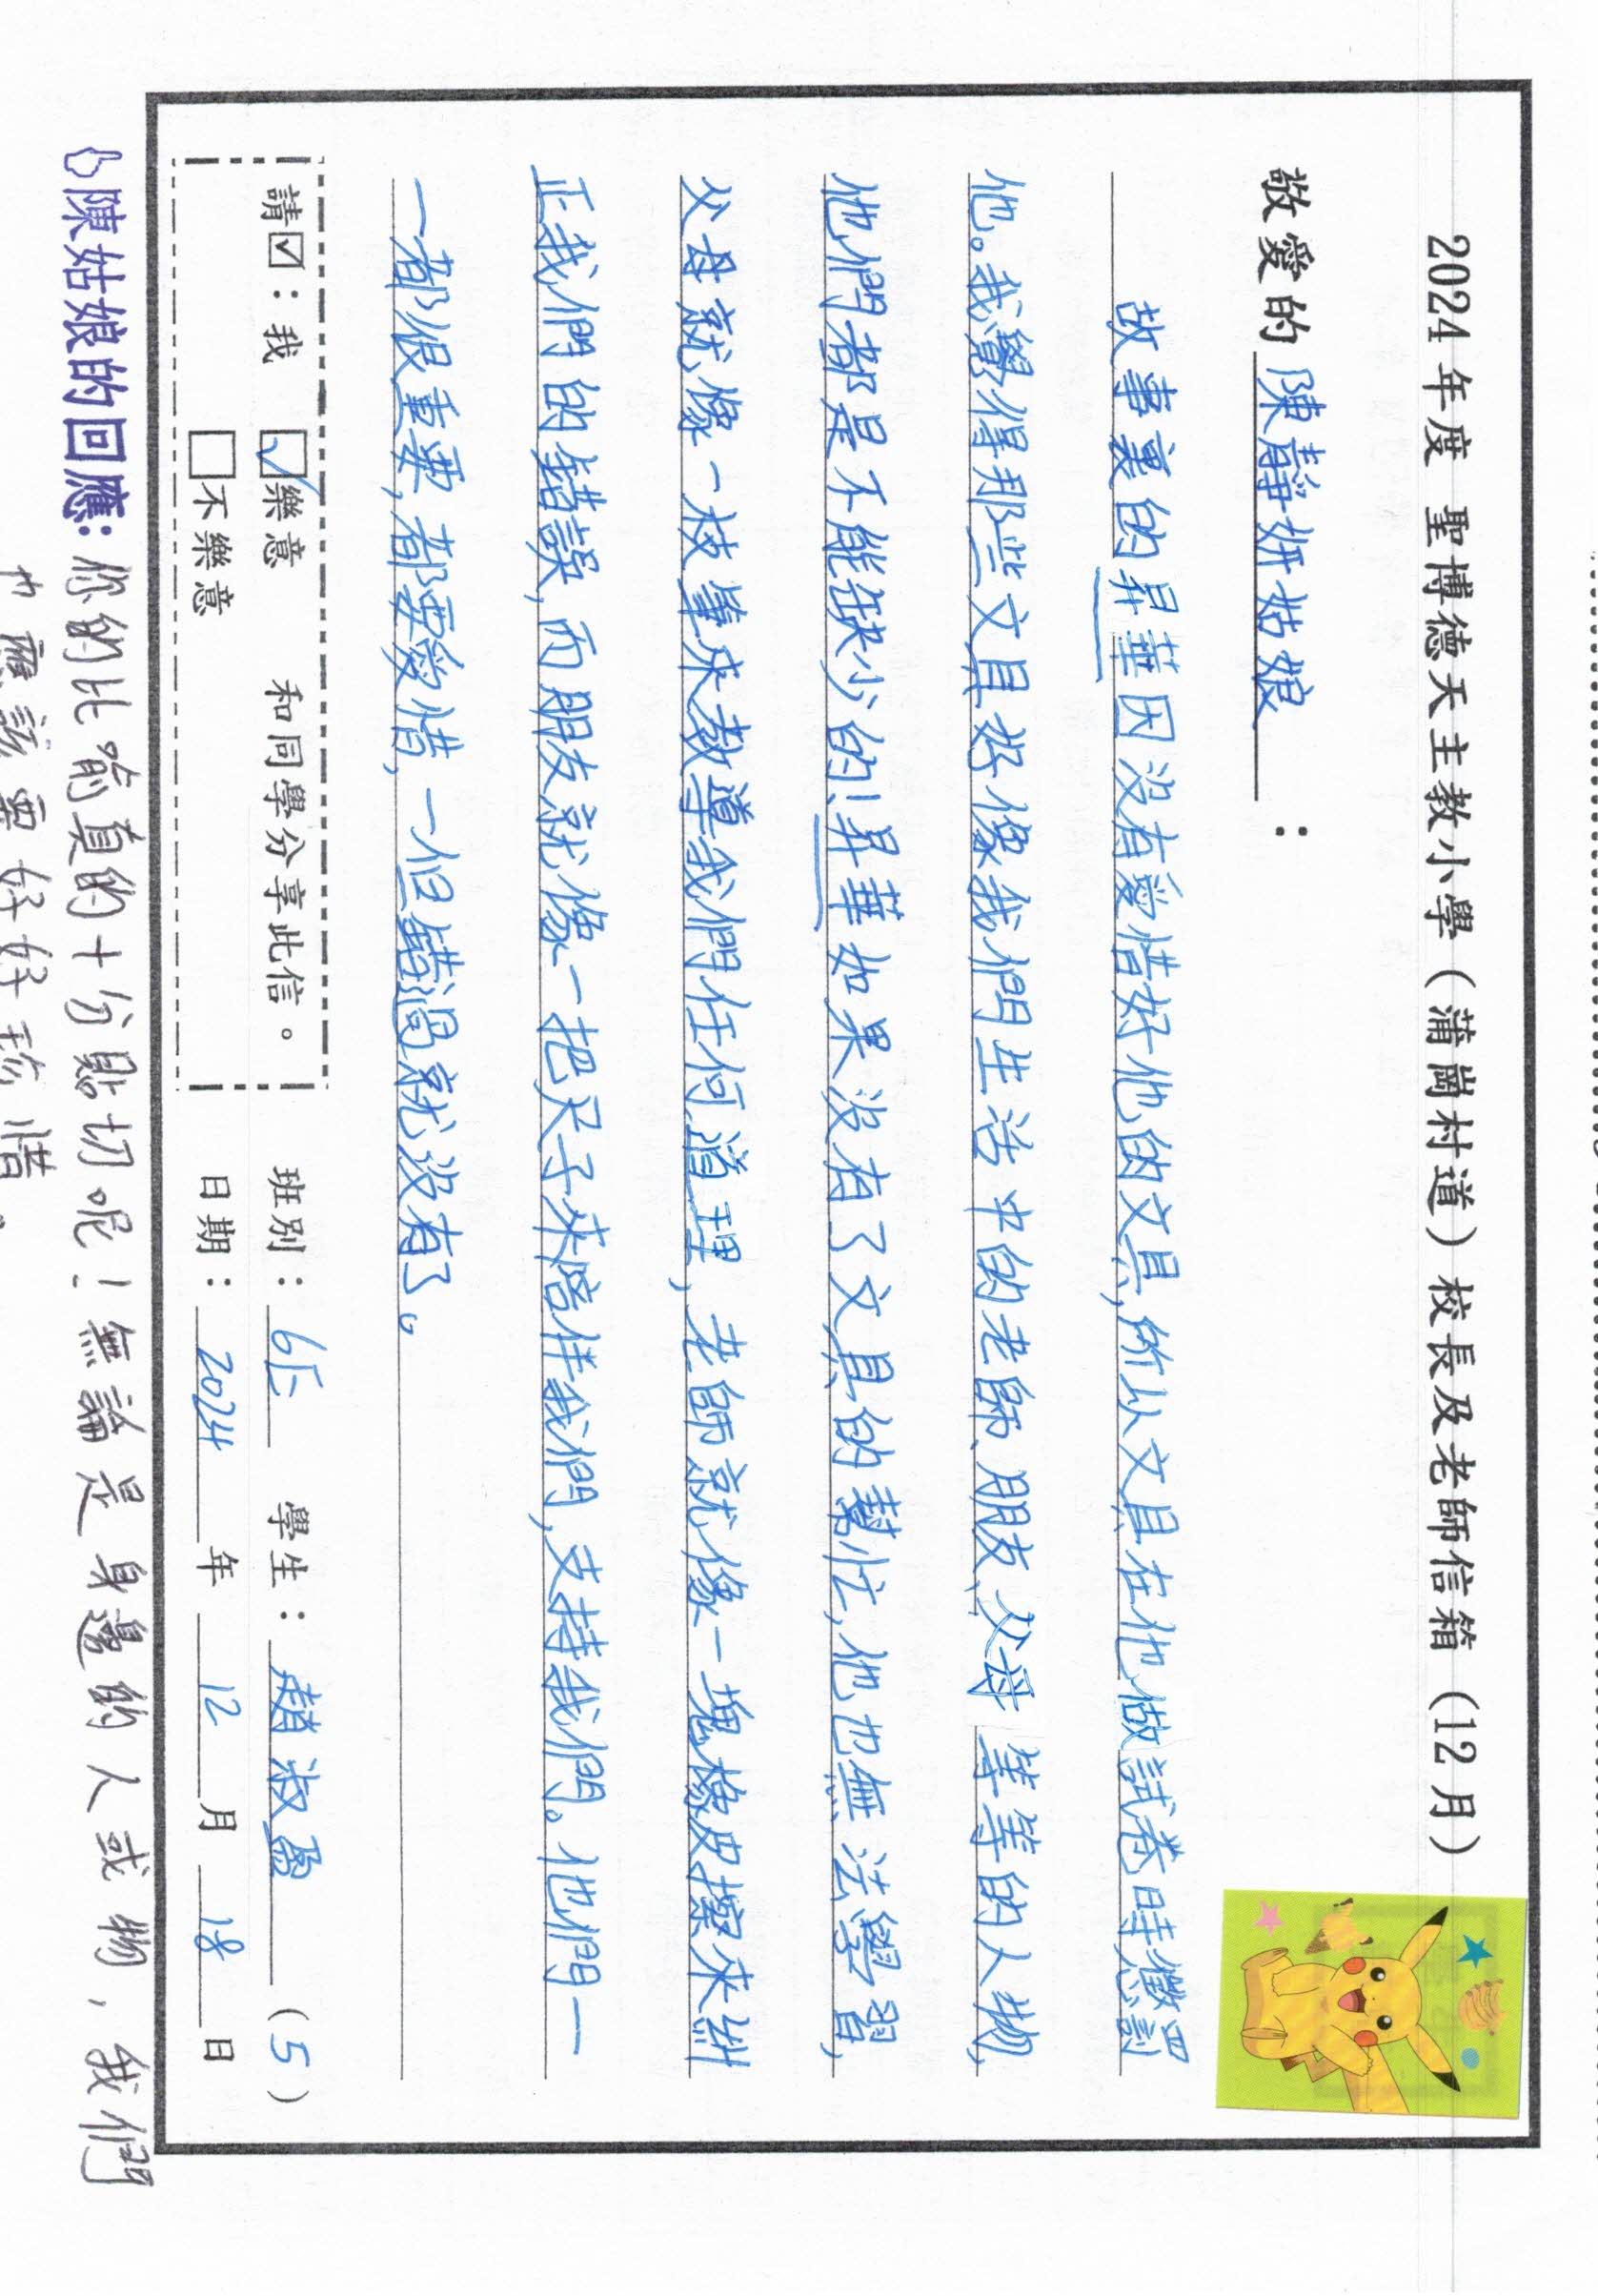 2024年度 聖博德天主教小學（蒲崗村道）校長及老師信箱（12月）
敬愛的 陳靜妍姑娘 ：
故事裏的昇華因沒有愛惜好他的文具，所以文具在他做試卷時懲罰
他。我覺得那些文具好像我們生活中的老師、朋友、父母等等的人物，
他們都是不能缺少的！昇華如果沒有了文具的幫忙，他也無法學習，
父母就像一枝筆來教導我們任何道理，老師就像一塊橡皮擦來糾
正我們的錯誤，而朋友就像一把尺子來陪伴我們，支持我們。他們一
一都很重要，都要愛惜，一但錯過就沒有了。
請☑：我 ☑樂意 和同學分享此信。
□不樂意
班別：6E 學生：趙淑盈（5）
日期：2024年12月18日
陳姑娘的回應：你的比喻真的十分貼切呢！無論是身邊的人或物，我們
也應該要好好珍惜。